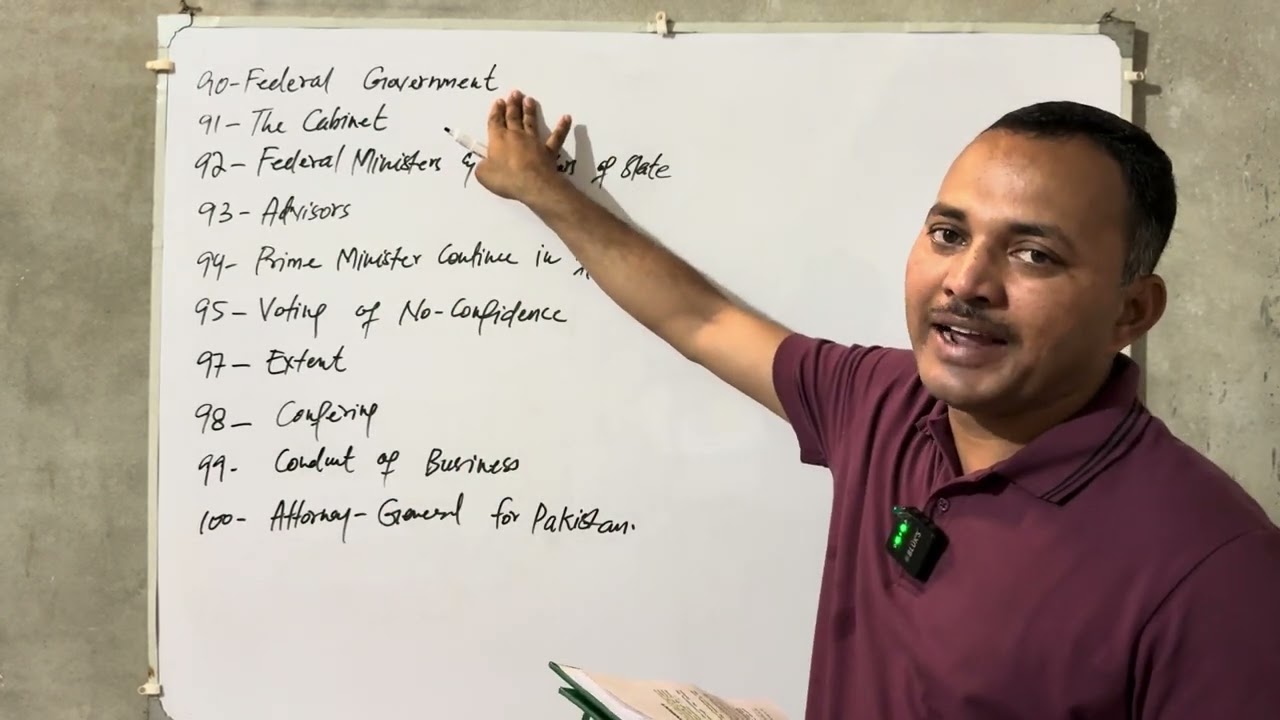 90-Federal Government
91- The Cabinet
92- Federal Ministers of State
93- Advisors
94- Prime Minister Continue in
95- Voting of No-Confidence
97- Extent
98- Confering
99- Conduct of Business
100- Attorney-General for Pakistan.